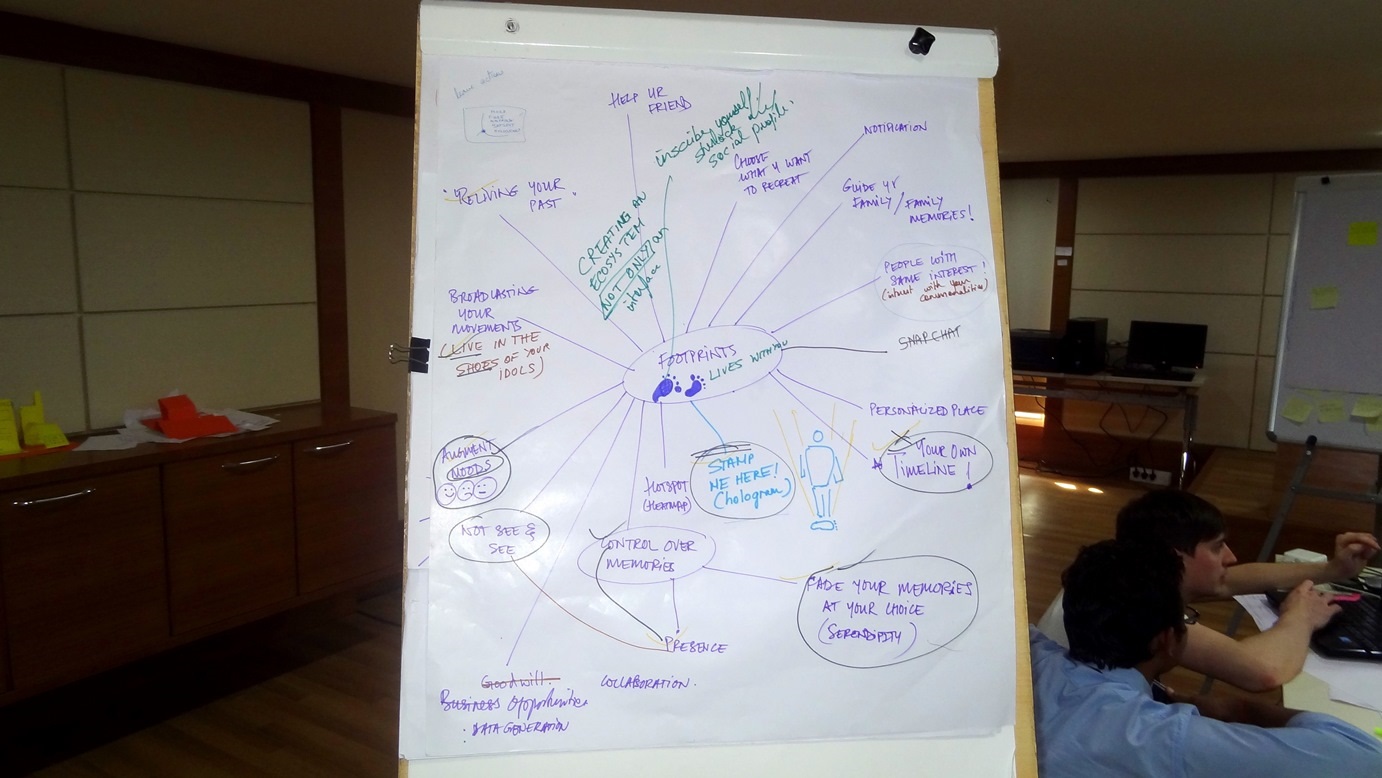 HELP UR
FRIEND
inscribe yourself/
social profile.
NOTIFICATION
CHOOSE
WHAT Y WANT
TO RECREAT
RELIVING YOUR
PAST.
GUIDE YR
FAMILY / FAMILY
MEMORIES!
CREATING AN
ECOSYSTEM
NOT ONLY an
interface
PEOPLE WITH
SAME INTEREST!
(intract with your
commonalities)
BROADCASTING
YOUR
MOVEMENTS
(LIVE IN THE
SHOES OF YOUR
IDOLS)
SNAPCHAT
FOOTPRINTS
LIVES WITH YOU
PERSONALIZED PLACE
AUGMENT
MOODS
STAMP
ME HERE!
(hologram)
YOUR OWN
TIMELINE!
HOTSPOT
(HEATMAP)
NOT SEE &
SEE
CONTROL OVER
MEMORIES
FADE YOUR MEMORIES
AT YOUR CHOICE
(SERENDIPITY)
PRESENCE
Goodwill.
COLLABORATION.
BUSINESS Opportunities
. DATA GENERATION